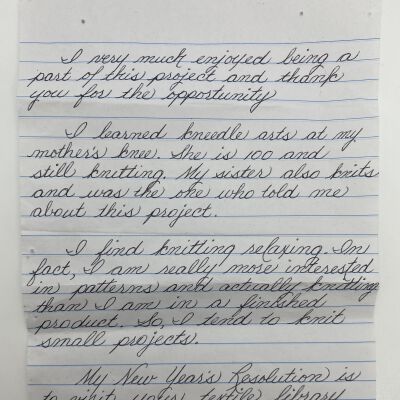 I very much enjoyed being a
part of this project and thank
you for the opportunity
I learned kneedle arts at my
mother's knee. She is 100 and
still knitting. My sister also knits
and was the one who told me
about this project.
I find knitting relaxing. In
fact, I am really more interested
in patterns and actually knitting
than I am in a finished
product. So, I tend to knit
small projects.
My New Year's Resolution is
to visit your textile library